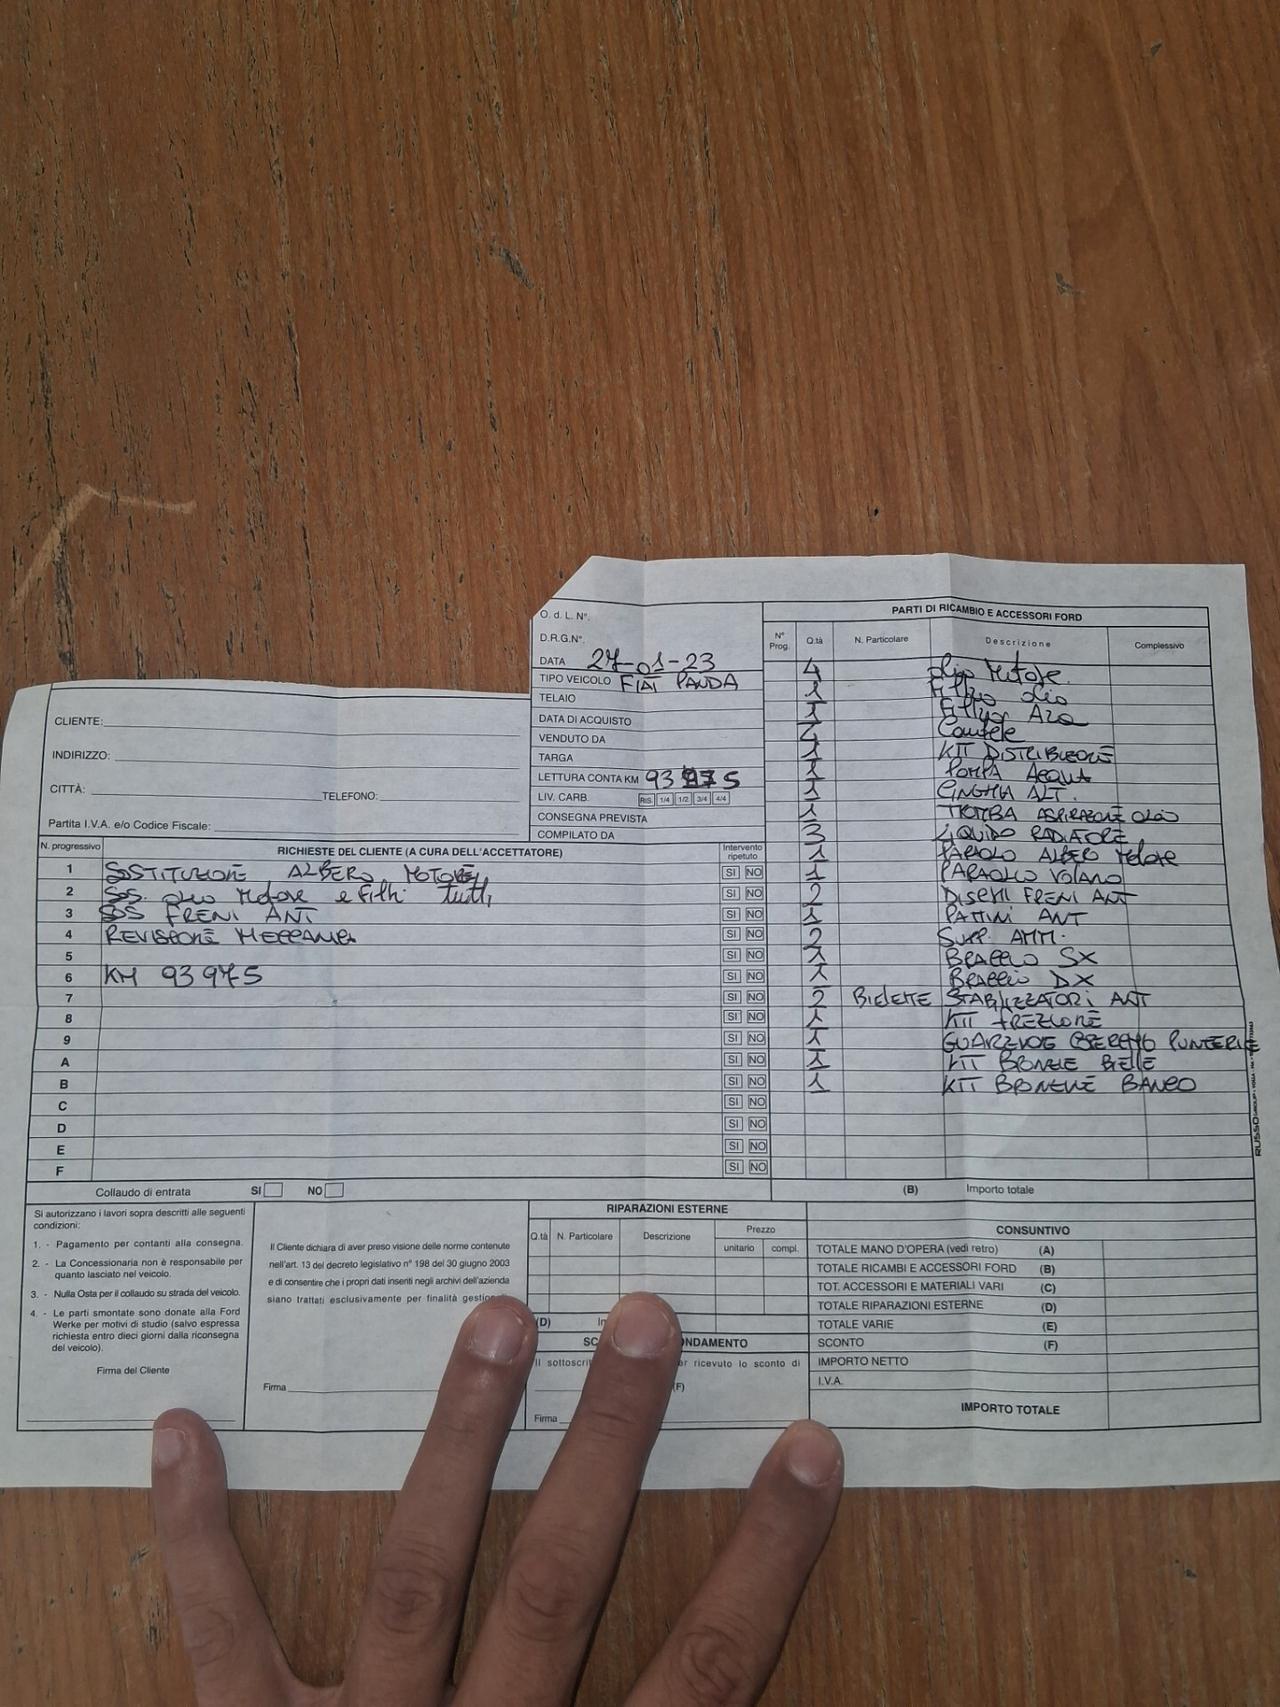 O. d. L. N°.
D.R.G.N°.
DATA 27-01-23
TIPO VEICOLO FIAT PANDA
TELAIO
DATA DI ACQUISTO
VENDUTO DA
TARGA
LETTURA CONTA KM 93 975
LIV. CARB. RIS. 1/4 1/2 3/4 4/4
CONSEGNA PREVISTA
COMPILATO DA
CLIENTE:
INDIRIZZO:
CITTÀ: TELEFONO:
Partita I.V.A. e/o Codice Fiscale:
N. progressivo RICHIESTE DEL CLIENTE (A CURA DELL'ACCETTATORE) Intervento ripetuto
1 SOSTITUZIONE ALBERO MOTORE SI NO
2 SOS. olio Motore e filtri tutti SI NO
3 SOS FRENI ANT SI NO
4 REVISIONE MECCANICA SI NO
5 SI NO
6 KM 93975 SI NO
7 SI NO
8 SI NO
9 SI NO
A SI NO
B SI NO
C SI NO
D SI NO
E SI NO
F SI NO
Collaudo di entrata SI NO
PARTI DI RICAMBIO E ACCESSORI FORD
N° Prog. Q.tà N. Particolare Descrizione Complessivo
4 olio Motore
1 Filtro olio
1 Filtro Aria
4 Candele
1 KIT DISTRIBUZIONE
1 POMPA ACQUA
1 CINGHIA ALT.
1 TROMBA ASPIRAZIONE OLIO
3 LIQUIDO RADIATORE
1 PARAOLIO ALBERO Motore
1 PARAOLIO VOLANO
2 DISCHI FRENI ANT
1 PATTINI ANT
2 SUPP. AMM.
1 BRACCIO SX
1 BRACCIO DX
2 BIELETTE STABILIZZATORI ANT
1 KIT FRIZIONE
1 GUARZIONE COPERCHIO PUNTERIE
1 KIT BRONZINE BIELLE
1 KIT BRONZINE BANCO
(B) Importo totale
Si autorizzano i lavori sopra descritti alle seguenti condizioni:
1. - Pagamento per contanti alla consegna.
2. - La Concessionaria non è responsabile per quanto lasciato nel veicolo.
3. - Nulla Osta per il collaudo su strada del veicolo.
4. - Le parti smontate sono donate alla Ford Werke per motivi di studio (salvo espressa richiesta entro dieci giorni dalla riconsegna del veicolo).
Firma del Cliente
Il Cliente dichiara di aver preso visione delle norme contenute
nell'art. 13 del decreto legislativo n° 198 del 30 giugno 2003
e di consentire che i propri dati inseriti negli archivi dell'azienda
siano trattati esclusivamente per finalità
Firma
RIPARAZIONI ESTERNE
Q.tà N. Particolare Descrizione Prezzo
unitario compl.
(D)
Il ricevuto lo sconto di
(F)
Firma
CONSUNTIVO
TOTALE MANO D'OPERA (vedi retro) (A)
TOTALE RICAMBI E ACCESSORI FORD (B)
TOT. ACCESSORI E MATERIALI VARI (C)
TOTALE RIPARAZIONI ESTERNE (D)
TOTALE VARIE (E)
SCONTO (F)
IMPORTO NETTO
I.V.A.
IMPORTO TOTALE